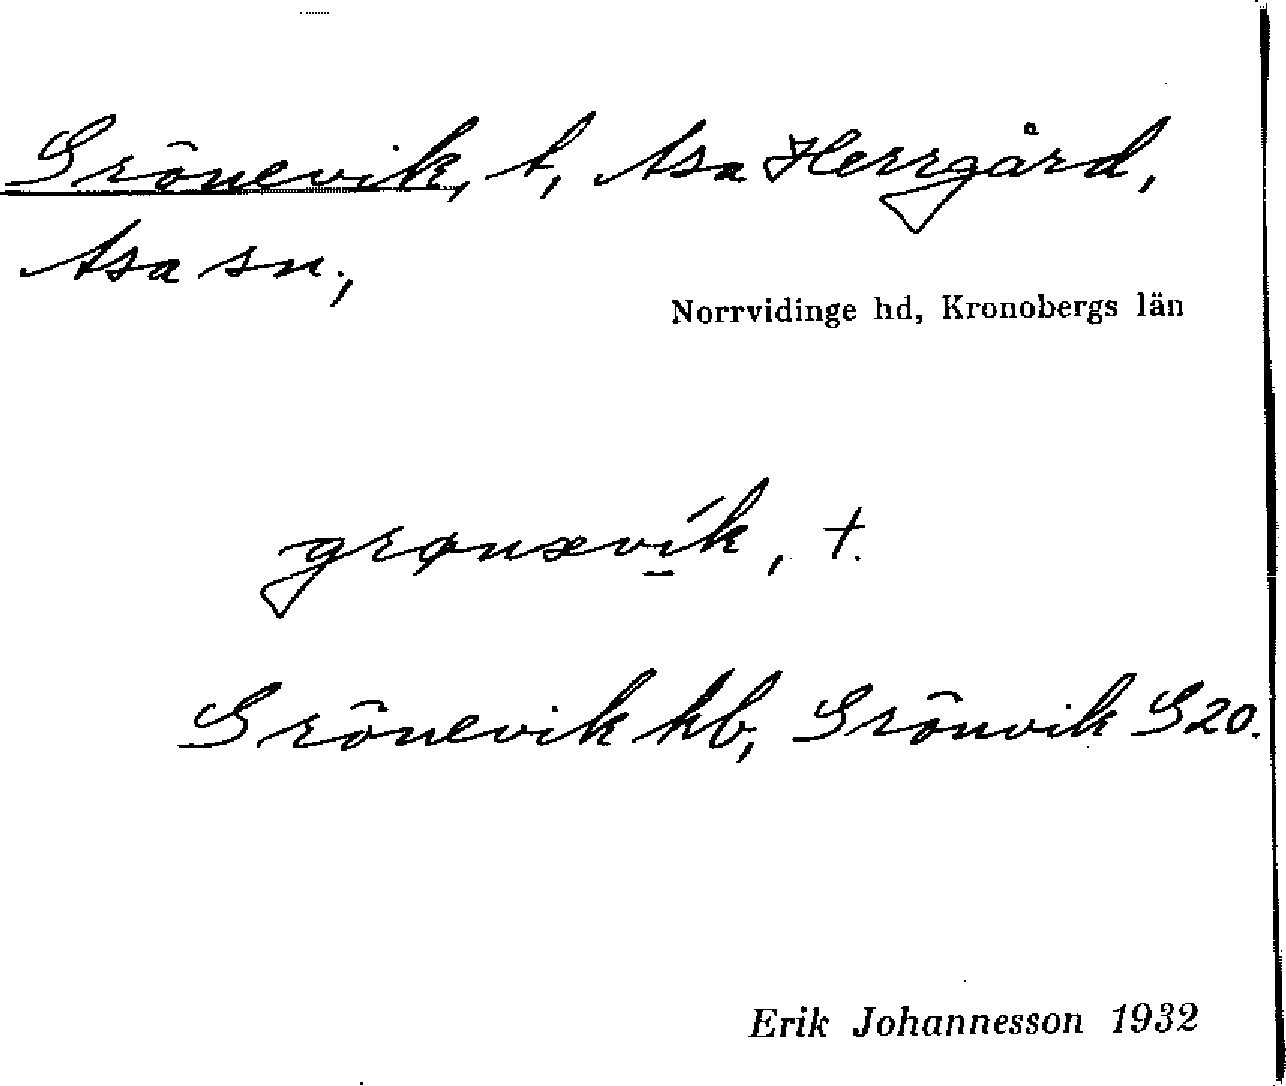 Grönevik, t, Asa Herrgård,
Asa sn.,
Norrvidinge hd, Kronobergs län
grønævík, t.
Grönevik hb, Grönvik G20.
Erik Johannesson 1932